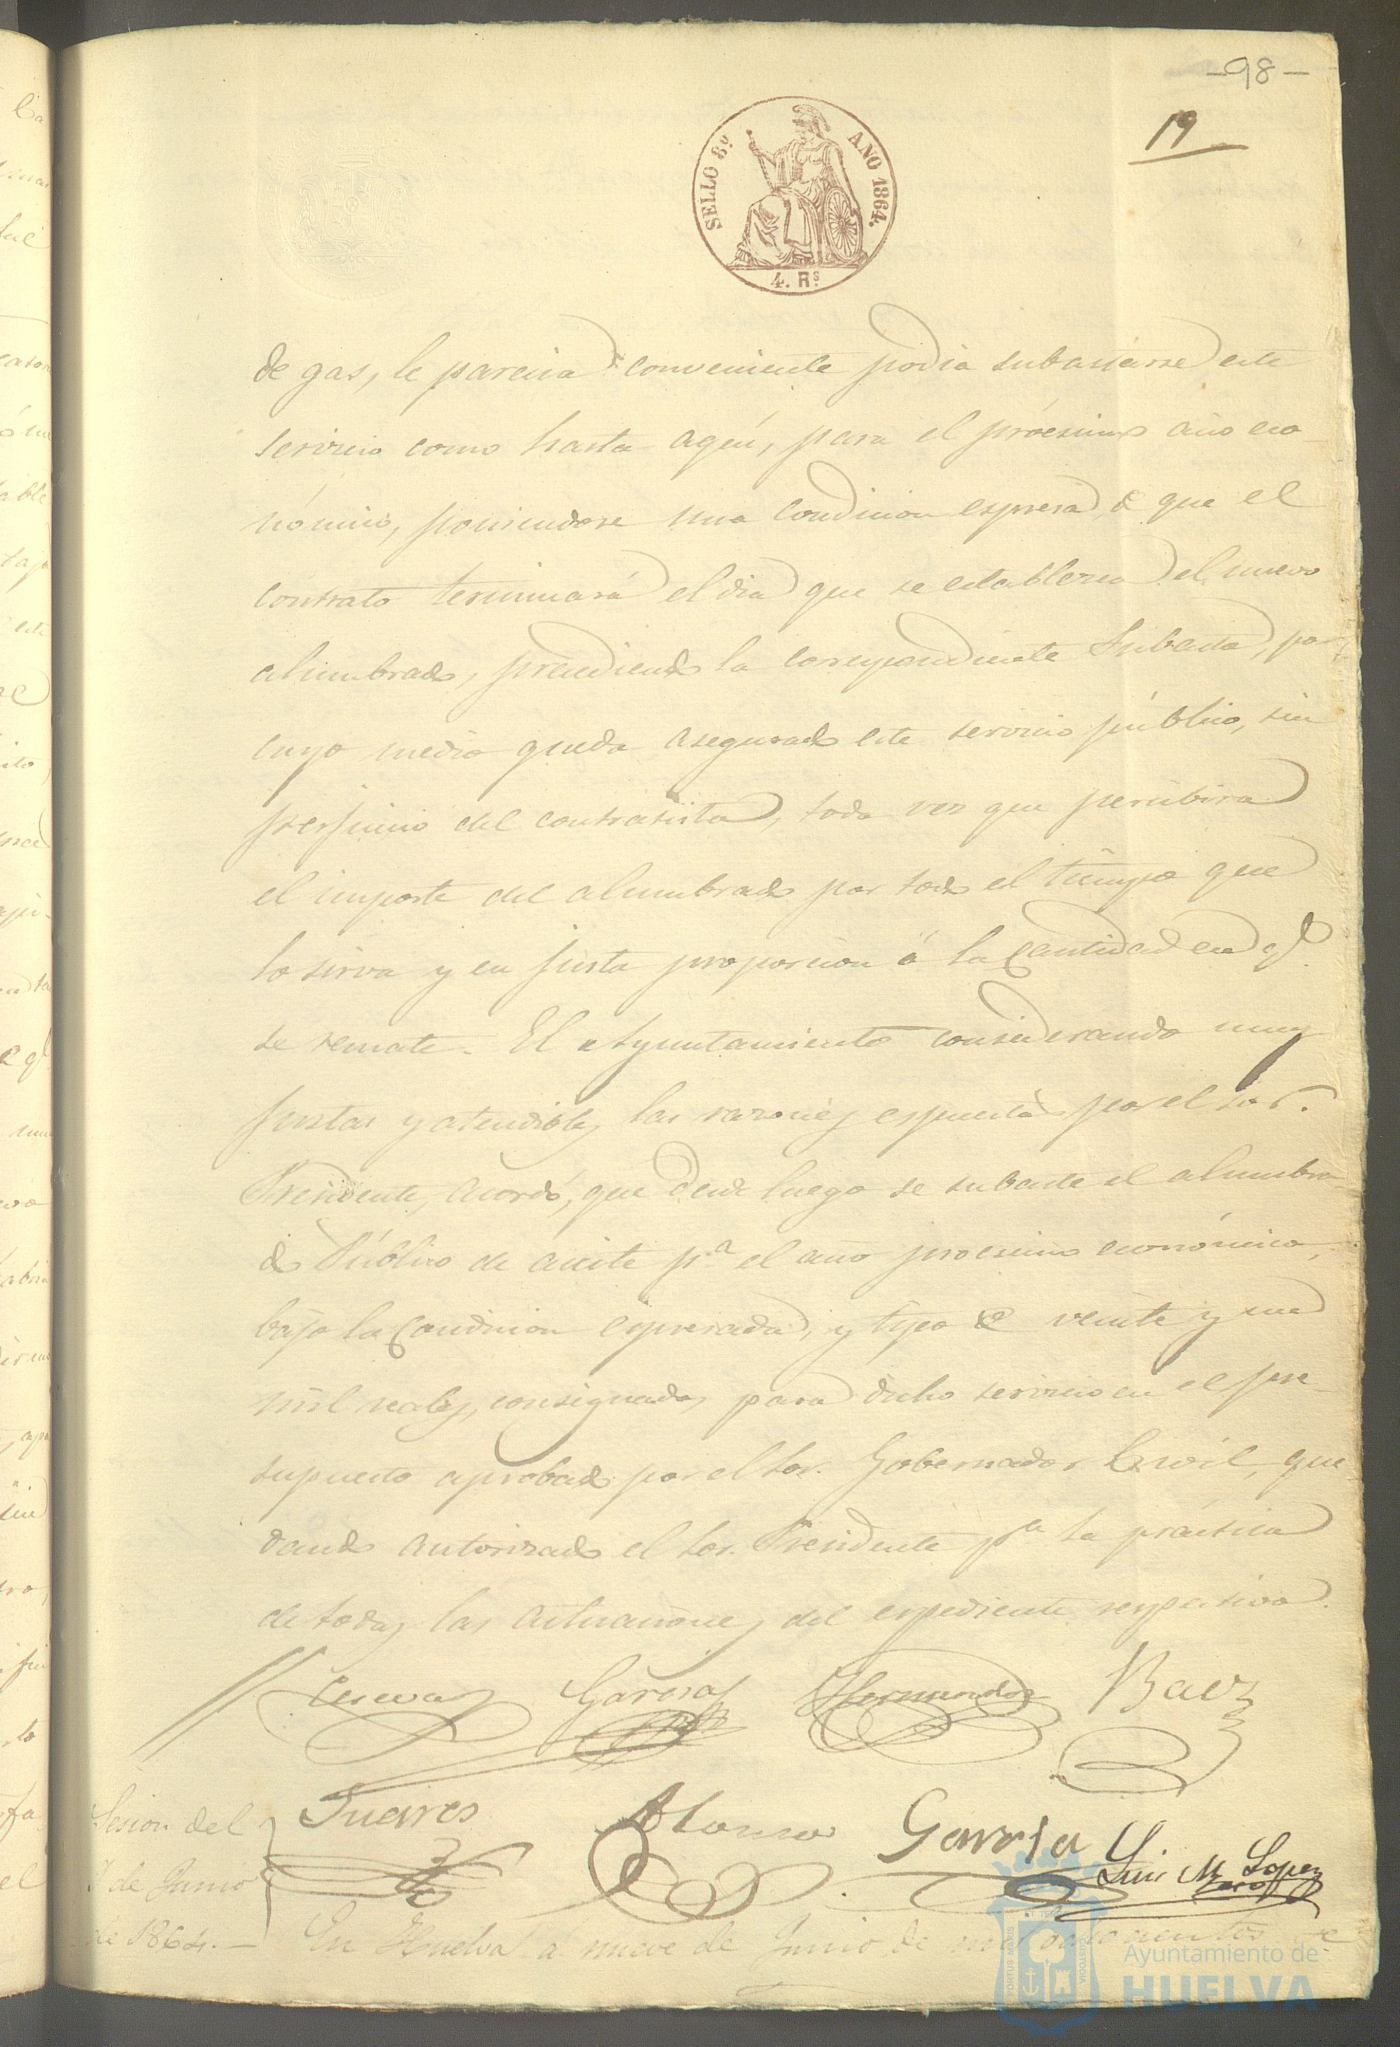 -98-
19
SELLO 8º AÑO 1864.
4. Rs
de gas, le parecia conveniente podia subastarse este
servicio como hasta aquí, para el prócsimo año eco-
nómico, poniendose una condicion espresa de que el
contrato terminará el dia que se establezca el nuevo
alumbrado, precediendo la correspondiente Subasta, por
cuyo medio queda asegurado este servicio público, sin
perjuicio del contratista, toda vez que percibirá
el importe del alumbrado por todo el tiempo que
lo sirva y en justa proporcion á la Cantidad en q.
se remate. El Ayuntamiento considerando muy
justas y atendibles las razones espuestas por el Sor.
Presidente, acordó, que desde luego se subaste el alumbra-
do Público de aceite pa el año procsimo económico,
bajo la Condicion espresada, y tipo de veinte y un
mil reales, consignados para dicho servicio en el pre-
supuesto aprobado por el Sor. Gobernador Civil, que
dando autorizado el Sor. Presidente pa la práctica
de todas las actuaciones del espediente respectivo.
Garcia Hernandez Baez
Suares Alonso Garcia Luis M. Lopez
Sesion del
9 de Junio
de 1864.-
En Huelva á nueve de Junio de mil ochocientos se
Ayuntamiento de
HUELVA